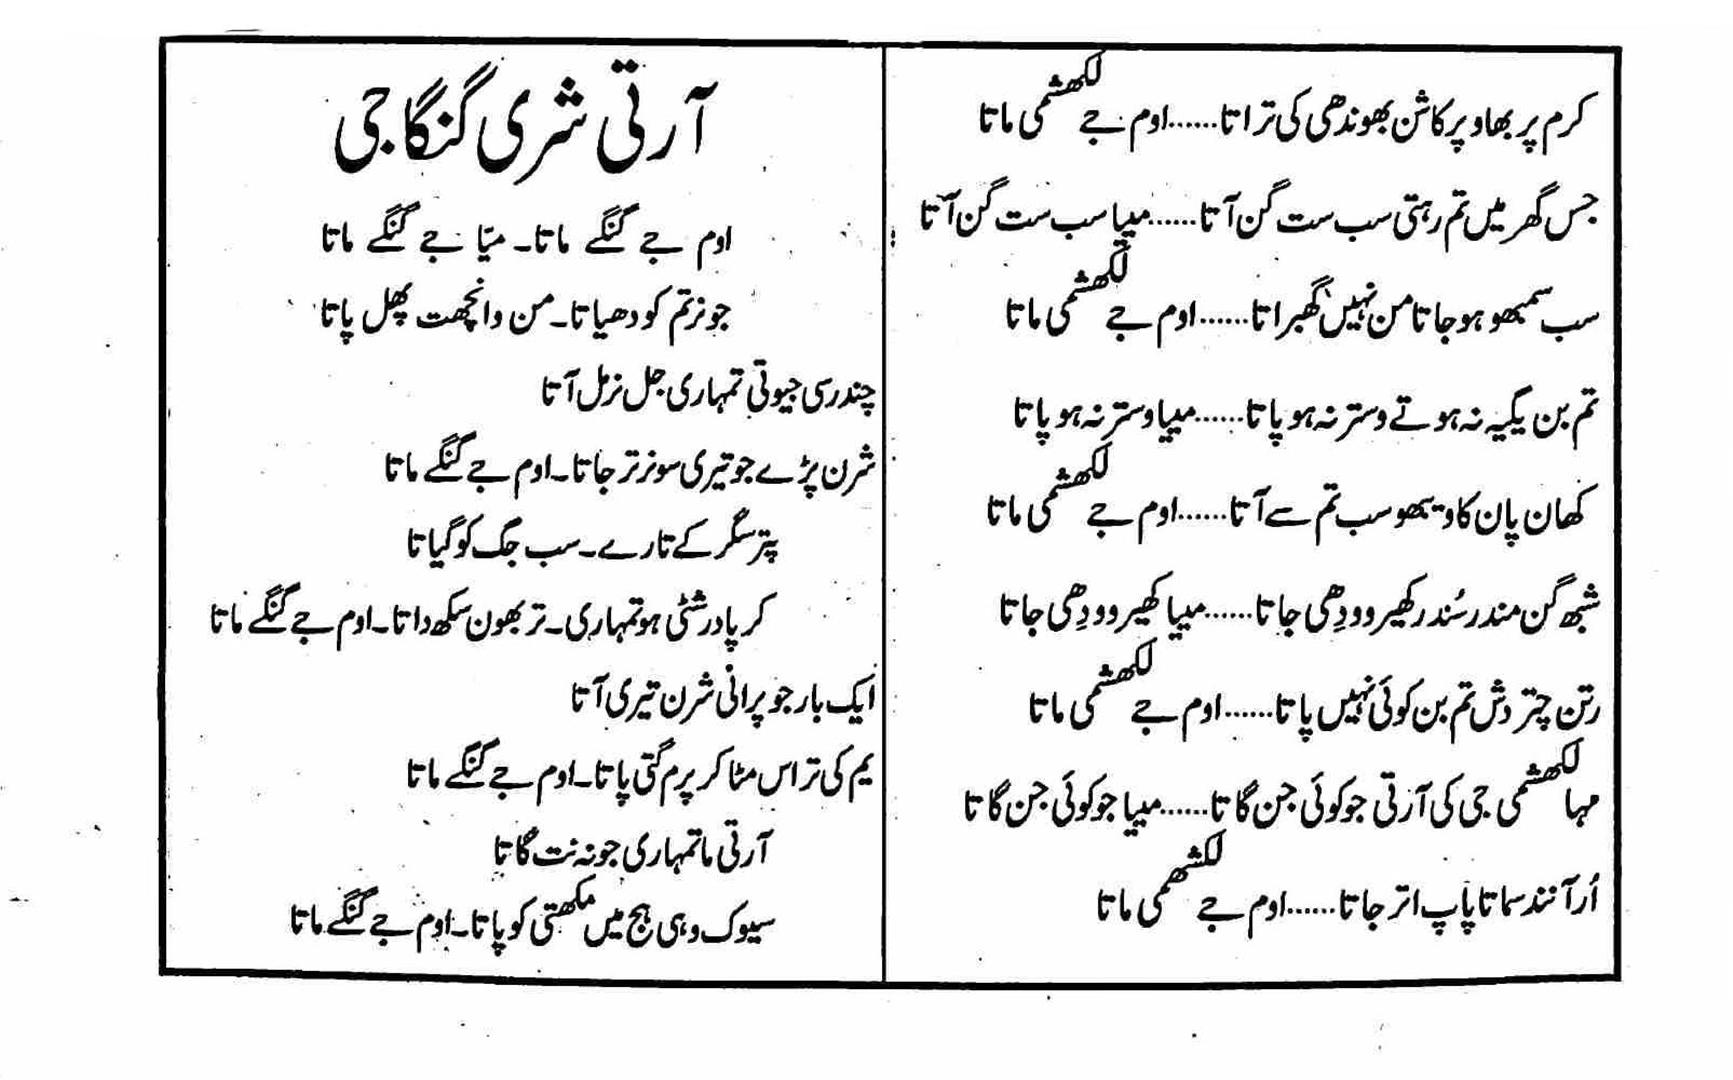 کرم پر بھاو پرکاشن بھوندھی کی تراتا......اوم جے لکھشمی ماتا
جس گھر میں تم رہتی سب ست گن آتا......میپا سب ست گن آتا
سب سمبھو ہو جاتا من نہیں گھبراتا......اوم جے لکھشمی ماتا
تم بن یگیہ نہ ہوتے وستر نہ ہو پاتا......میپا وستر نہ ہو پاتا
کھان پان کا ویبھو سب تم سے آتا......اوم جے لکھشمی ماتا
شبھ گن مندر سُندر کھیر وودِھی جاتا......میپا کھیر وودِھی جاتا
رتن چتر دش تم بن کوئی نہیں پاتا......اوم جے لکھشمی ماتا
مہا لکھشمی جی کی آرتی جو کوئی جن گاتا......میپا جو کوئی جن گاتا
اُر آنند سماتا پاپ اتر جاتا......اوم جے لکشھمی ماتا
آرتی شری گنگا جی
اوم جے گنگے ماتا۔ میّا جے گنگے ماتا
جو نر تم کو دھیاتا۔ من وانچھت پھل پاتا
چندر سی جیوتی تمہاری جل نرمل آتا
شرن پڑے جو تیری سو نر تر جاتا۔ اوم جے گنگے ماتا
پتر سگر کے تارے۔ سب جگ کو گیاتا
کرپا درشٹی ہو تمہاری۔ تر بھون سکھ داتا۔ اوم جے گنگے ماتا
ایک بار جو پرانی شرن تیری آتا
یم کی تراس مٹا کر پرم گتی پاتا۔ اوم جے گنگے ماتا
آرتی ما تمہاری جو نہ نت گاتا
سیوک وہی ہج میں مکھتی کو پاتا۔ اوم جے گنگے ماتا